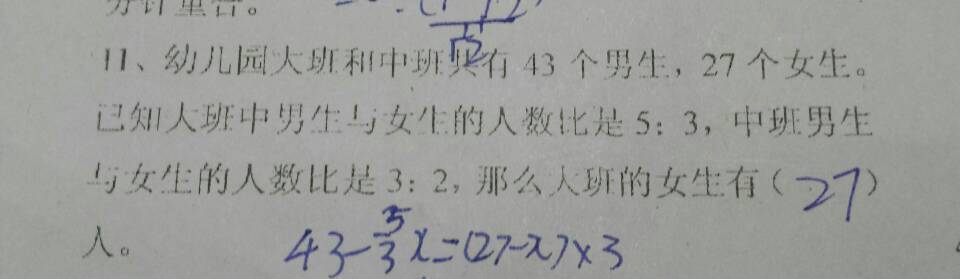 分针重合。
11、幼儿园大班和中班共有 43 个男生，27 个女生。
已知大班中男生与女生的人数比是 5：3，中班男生
与女生的人数比是 3：2，那么大班的女生有（ 27 ）
人。 43-5/3x=(27-x)×3